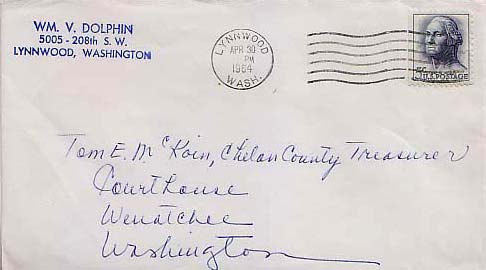 WM. V. DOLPHIN
5005 - 208th S. W.
LYNNWOOD, WASHINGTON
LYNNWOOD
APR 30
PM
1964
WASH.
5c
U.S. POSTAGE
Tom E. McKoin, Chelan County Treasurer
Courthouse
Wenatchee
Washington